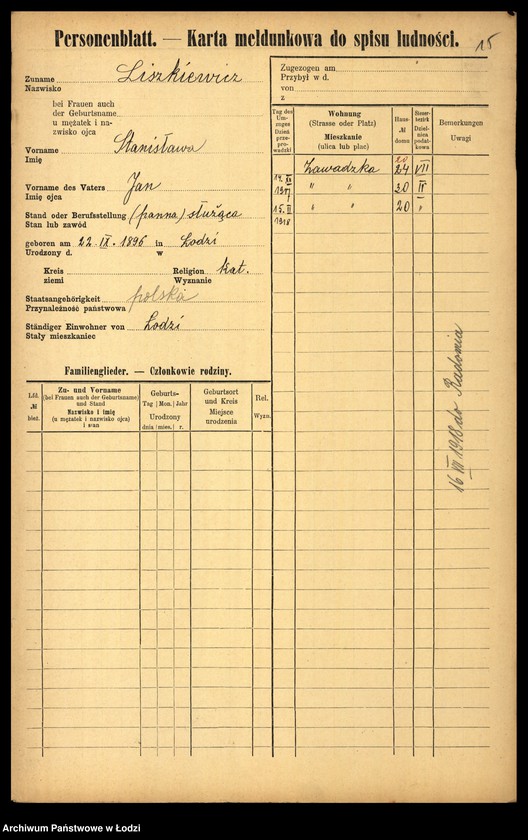 Personenblatt. — Karta meldunkowa do spisu ludności.
15
Zuname Liszkiewicz
Nazwisko
bei Frauen auch
der Geburtsname
u mężatek i na-
zwisko ojca
Vorname Stanisława
Imię
Vorname des Vaters Jan
Imię ojca
Stand oder Berufsstellung (panna) służąca
Stan lub zawód
geboren am 22. IX. 1896 in Łodzi
Urodzony d. w
Kreis Religion kat.
ziemi Wyznanie
Staatsangehörigkeit polska
Przynależność państwowa
Ständiger Einwohner von Łodzi
Stały mieszkaniec
Zugezogen am
Przybył w d.
von
z
Tag des Um-zuges Dzień prze-prowadzki
Wohnung
(Strasse oder Platz)
Mieszkanie
(ulica lub plac)
Haus-
№
domu
Dzielnica podatkowa
Bemerkungen
Uwagi
Zawadzka 24 VII
20
" " 30 IV
15. II 1918 " " 20 "
16 VII 1918 do Radomia
Familienglieder. — Członkowie rodziny.
Lfd.
№
bież.
Zu- und Vorname
(bei Frauen auch der Geburtsname)
und Stand
Nazwisko i imię
(u mężatek i nazwisko ojca)
i stan
Geburts-
Tag Mon. Jahr
Urodzony
dnia mies. r.
Geburtsort
und Kreis
Miejsce
urodzenia
Rel.
Wyzn.
Archiwum Państwowe w Łodzi